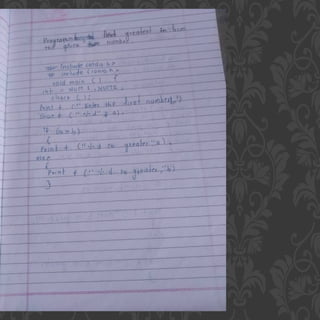 Program to find greatest in two
the given number
# include <stdio.h>
# include <conio.h>
void main ( ) {
int = num 1, num 2,
clrscr ( );
Print f ("Enter the first number");
Scan f ("%d" & a),
if (a>b)
{
Print f ("%d is greater" a),
else
{
Print f ("%d is greater," b)
}